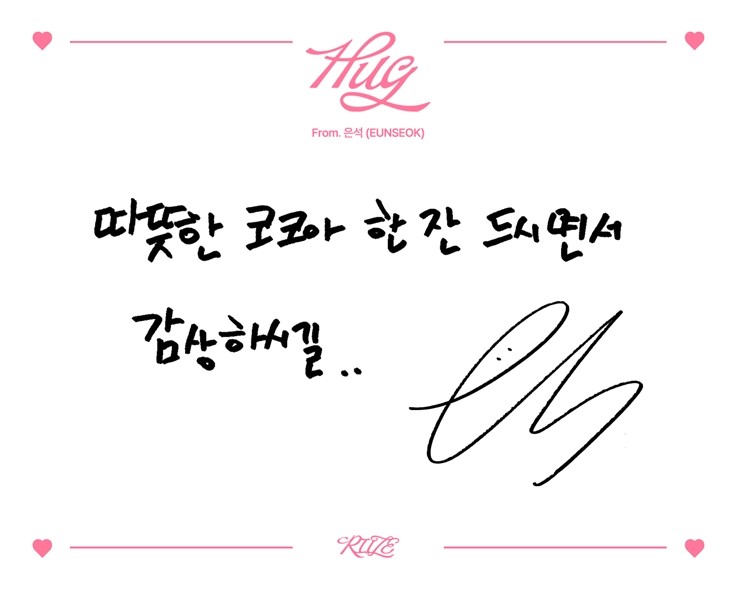 Hug
From. 은석 (EUNSEOK)
따뜻한 코코아 한 잔 드시면서
감상하시길..
RIIZE